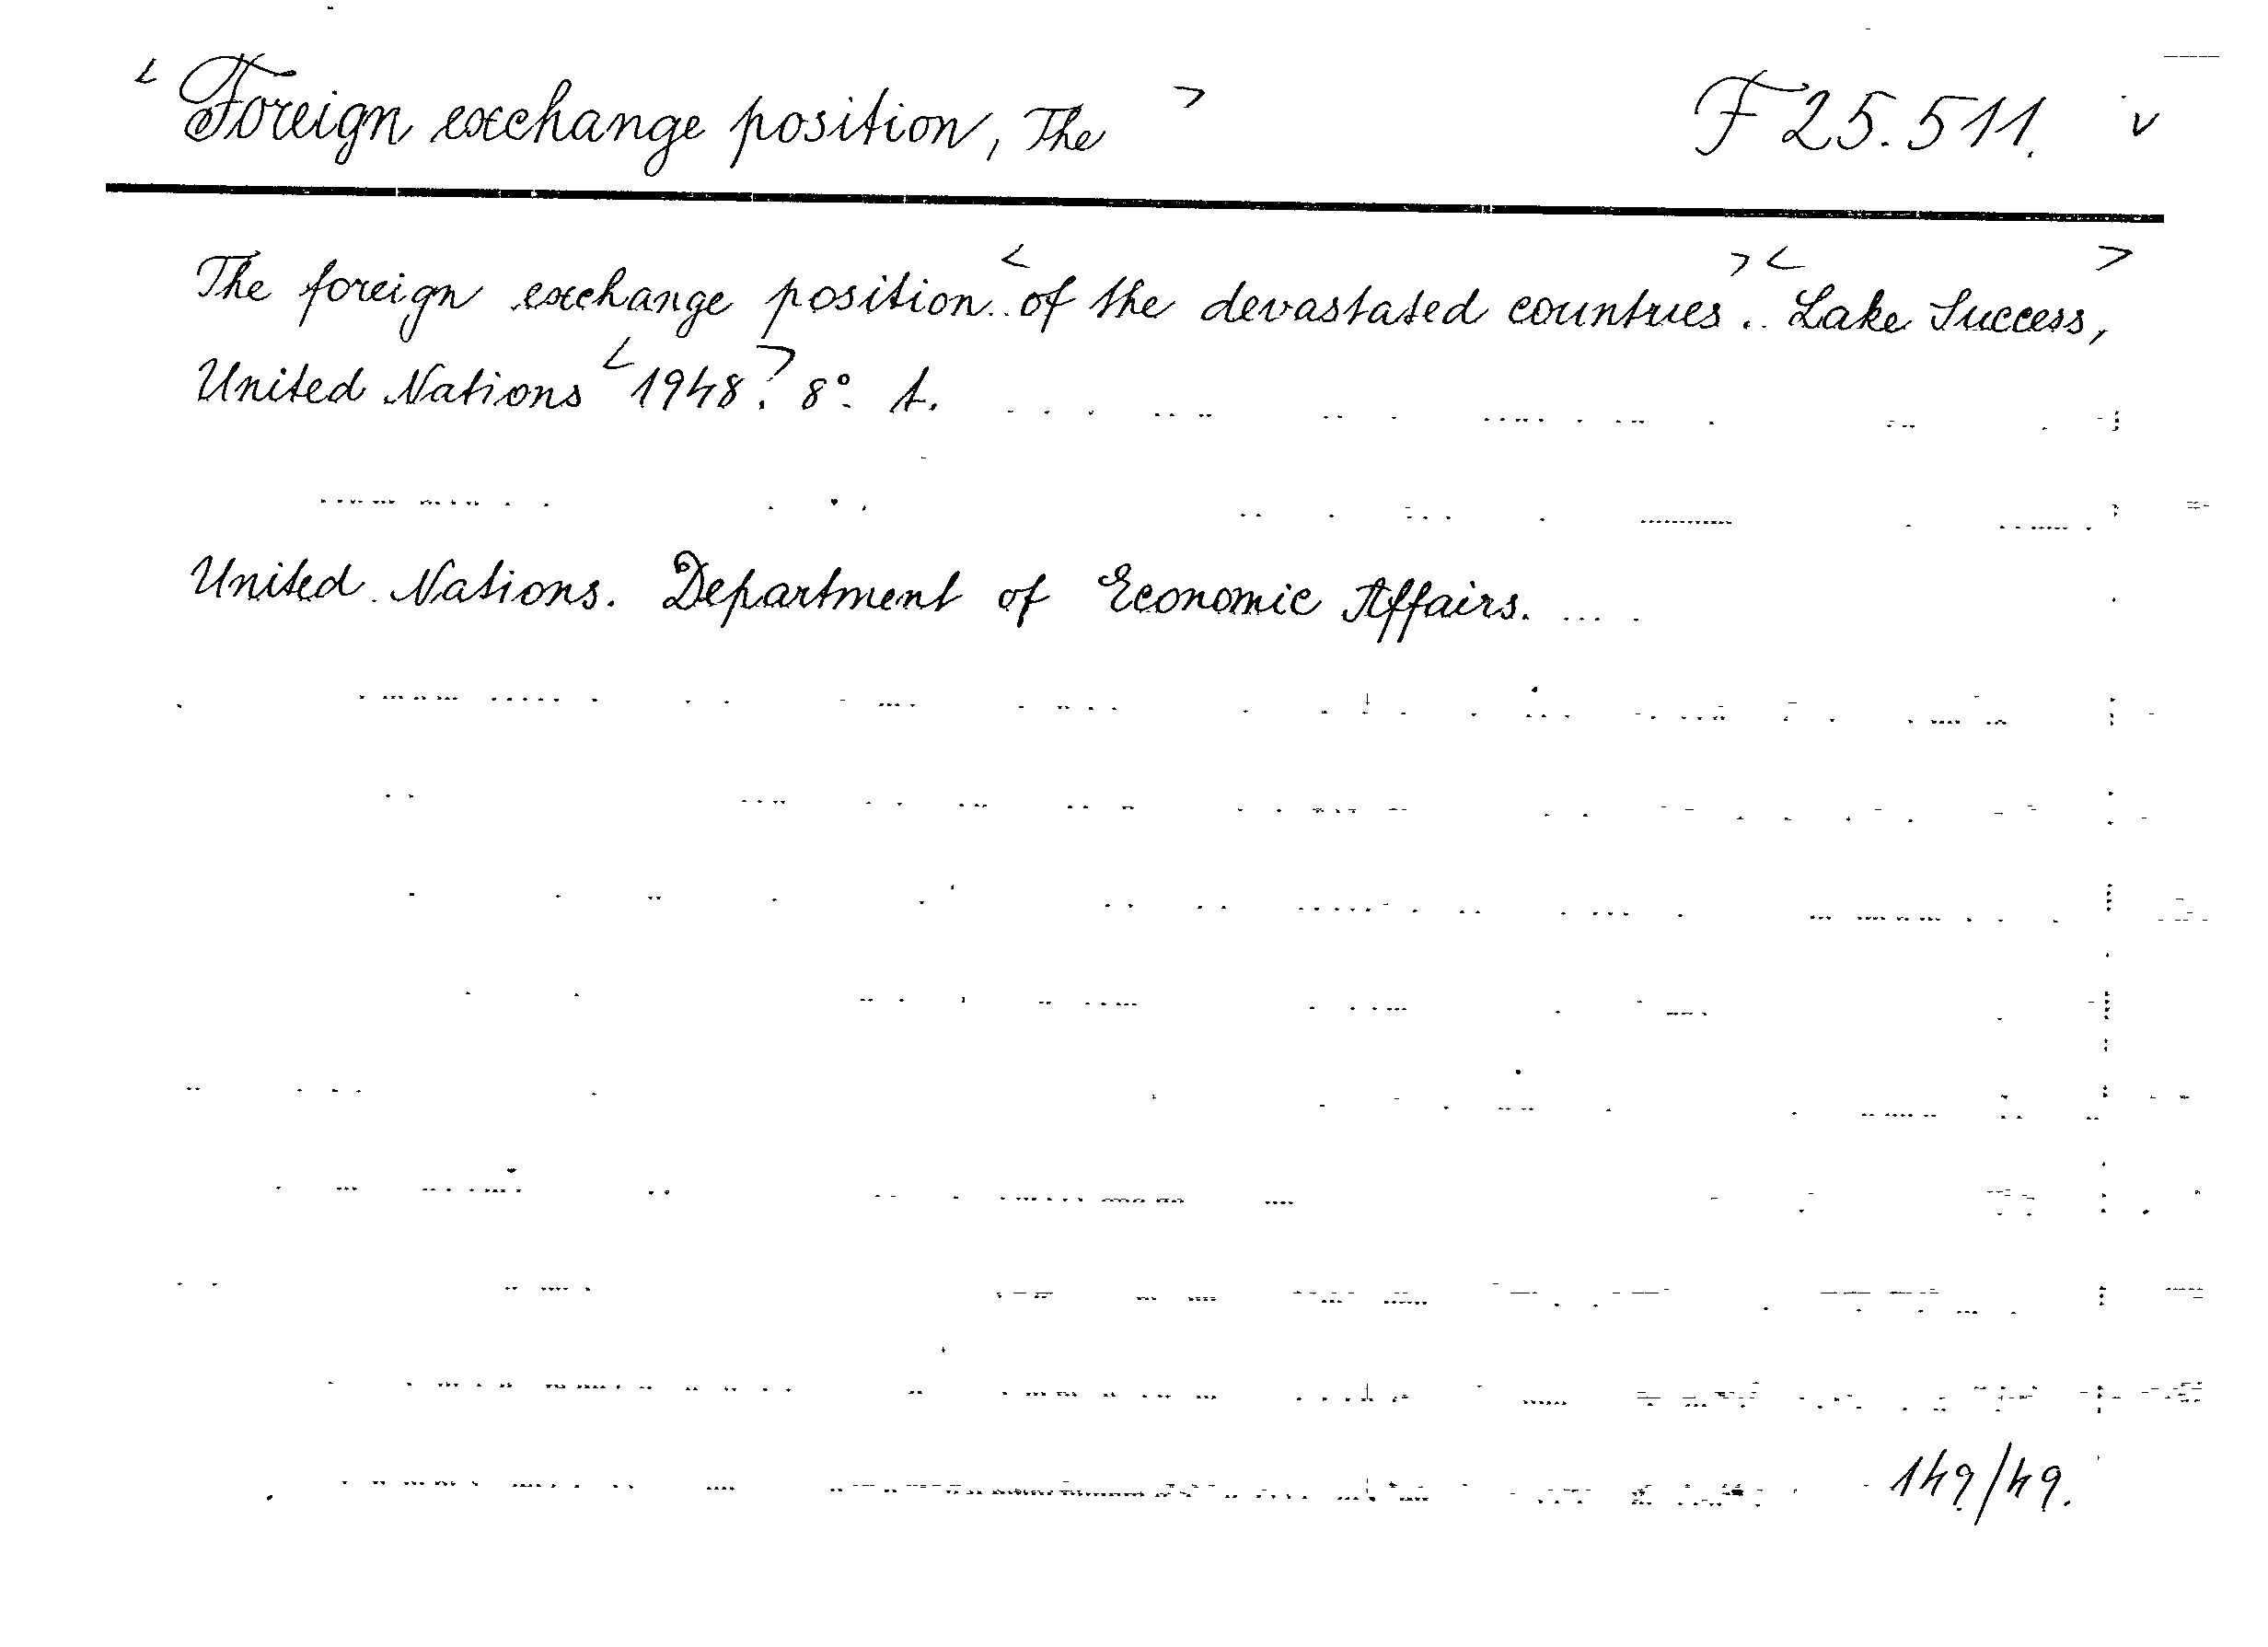 < Foreign exchange position, The > F 25.511. v
The foreign exchange position < of the devastated countries. > < Lake Success, >
United Nations < 1948. > 8°. t.
United Nations. Department of Economic Affairs.
149/49.